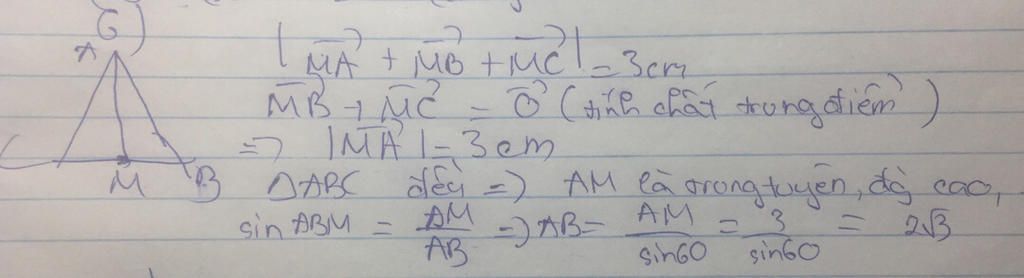 6)
A
|MA⃗ + MB⃗ + MC⃗| = 3cm
MB⃗ + MC⃗ = 0⃗ (tính chất trung điểm)
=> |MA⃗| = 3cm
C M B ΔABC đều => AM là trung tuyến, đg cao,
sin ABM = AM/AB => AB = AM/sin60 = 3/sin60 = 2√3